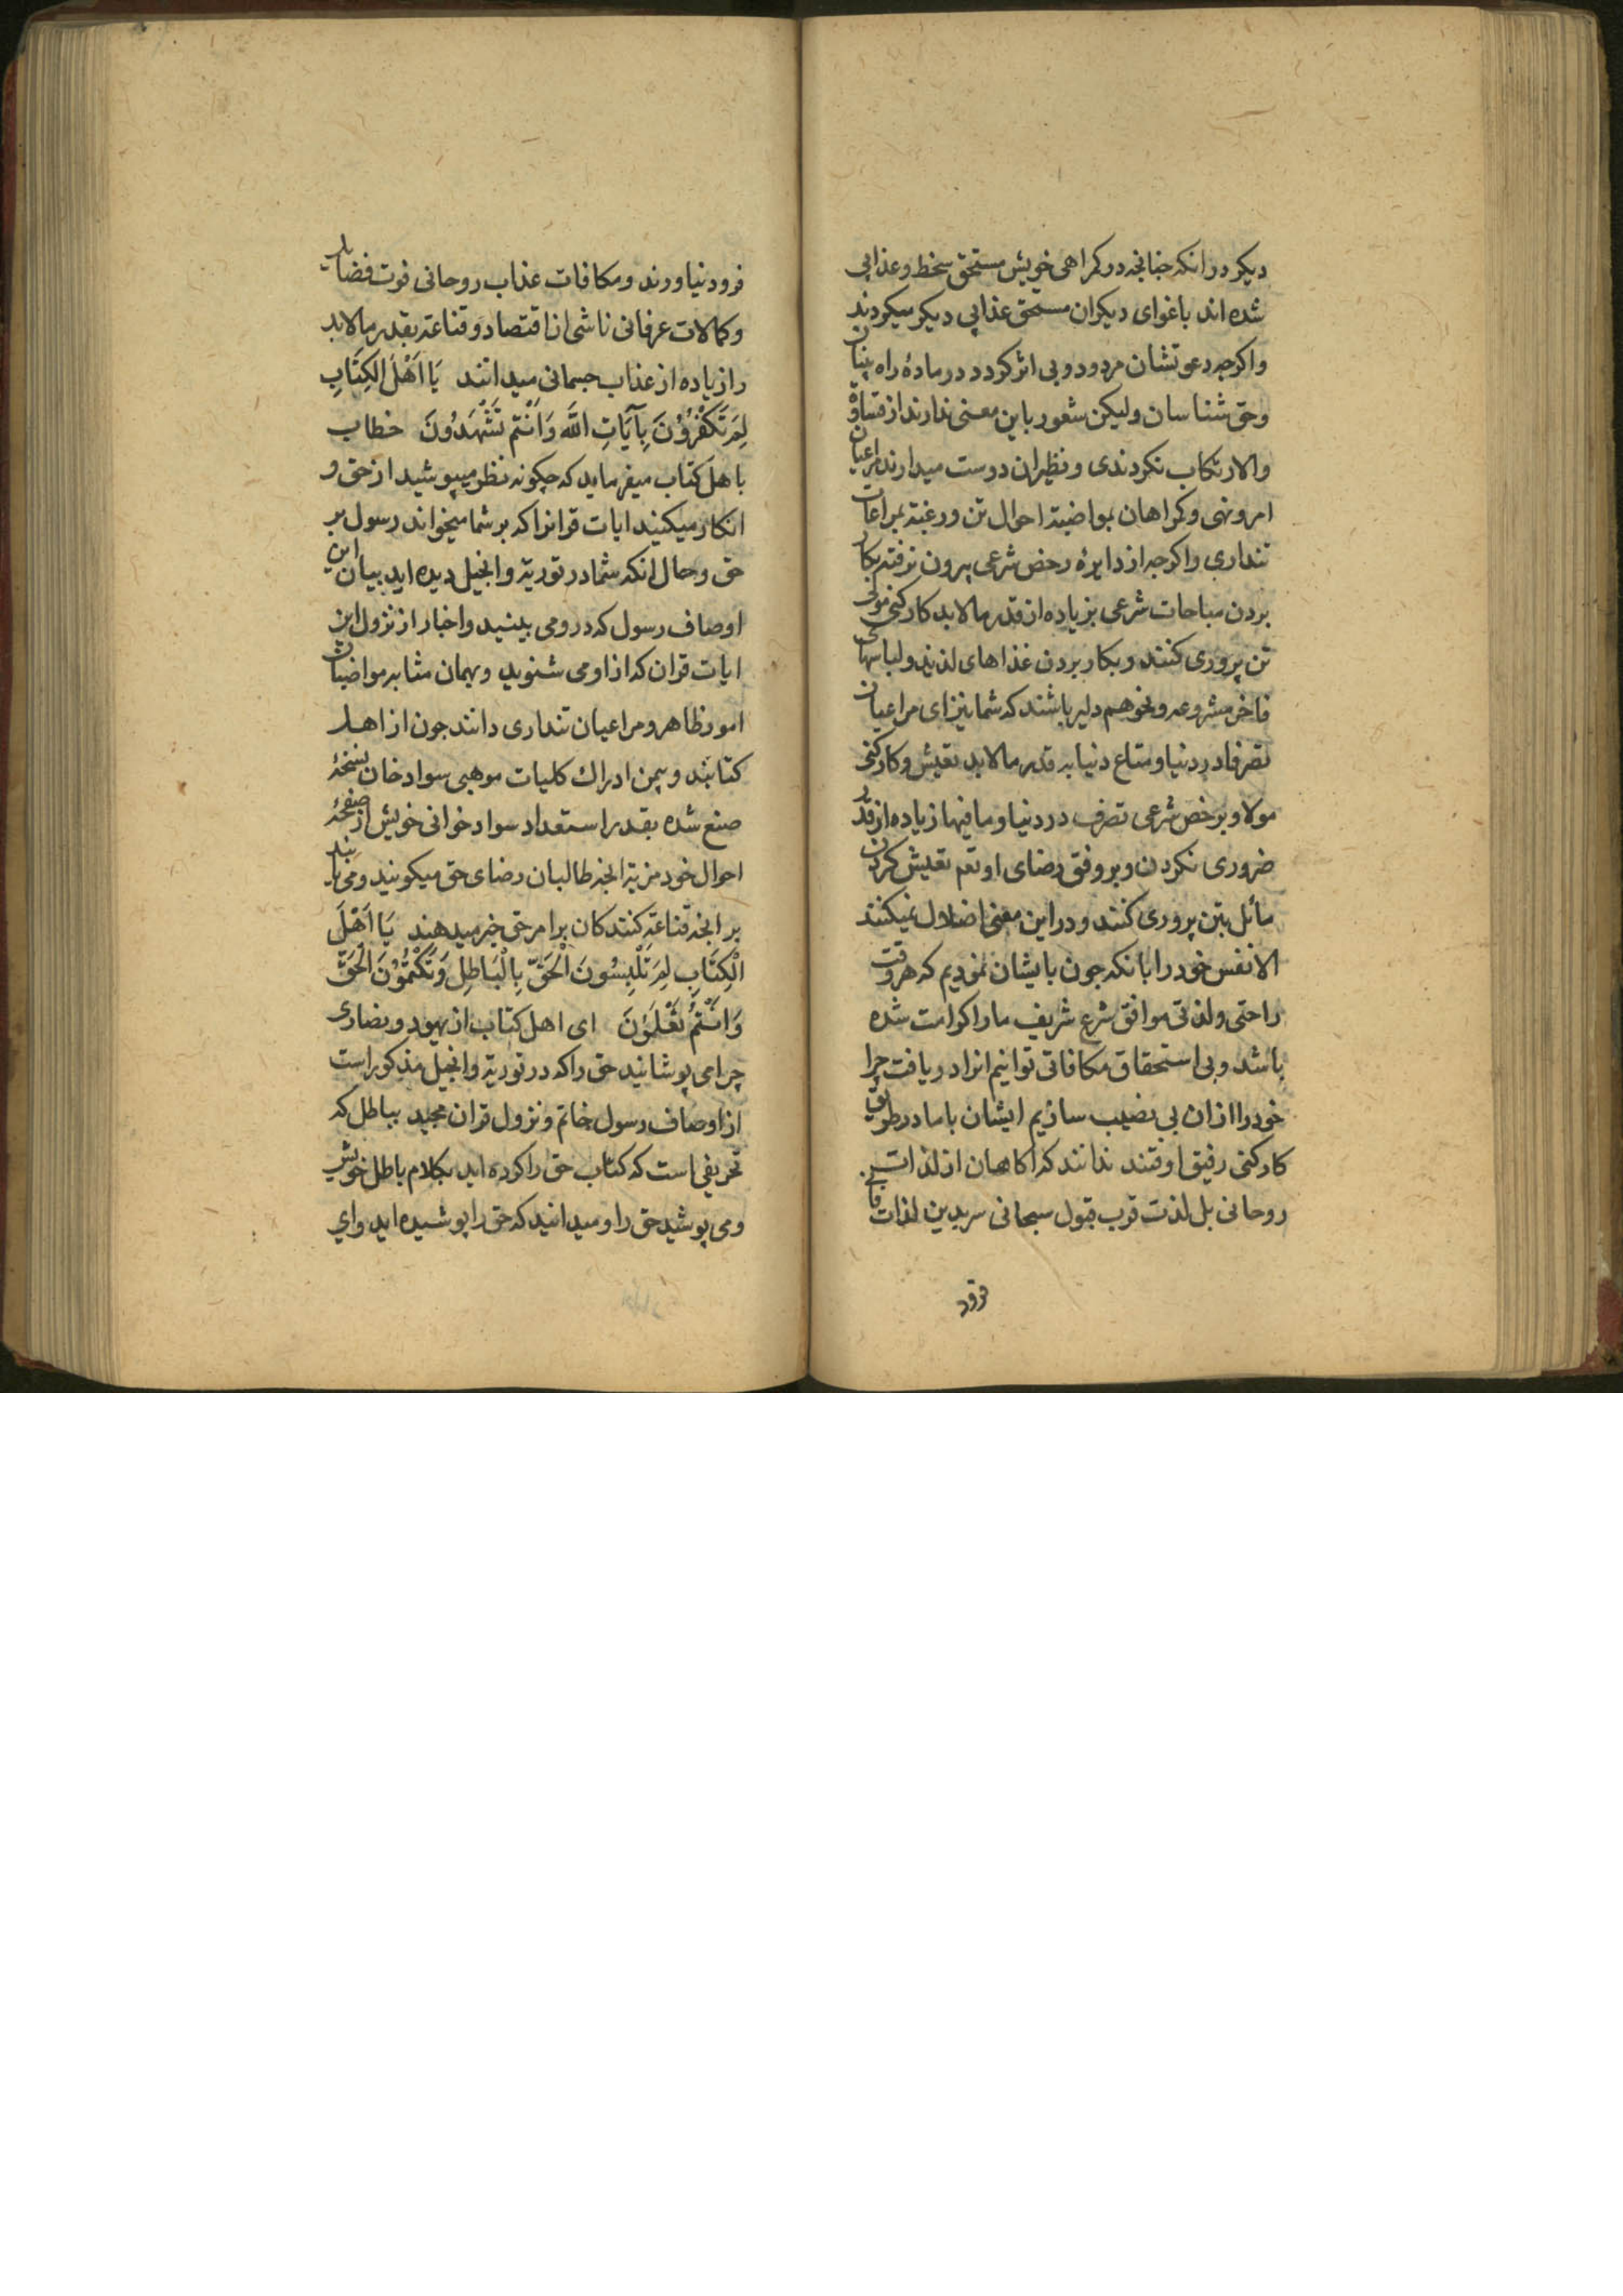 دیکر در انکه جنانجه در کمراهی خویش مستحق سخط و عذابی
شده اند باغوای دیکران مستحق عذابی دیکر میکردند
واکرجه دعوتشان مردود و بی اثر کردد در مادهٔ راه بینان
وحق شناسان ولیکن شعور باین معنی ندارند از قساوة
والا ارتکاب نکردندی و نظیر ان دوست میدارند مراعیان
امر ونهی و کمراهان بمواضبة احوال تن ورغبة بمراعات
تنداری واکرجه از دایرهٔ رخص شرعی بیرون نرفته بکار
بردن مباحات شرعی بزیاده از قدر مالابد کارکنی مولی
تن پروری کنند و بکار بردن غذاهای لذیذ ولباسهای
فاخر مشروعه ونحوهم دلیر باشند که شما نیز ای مراعیان
تصرفا در دنیا و متاع دنیا به قدر مالابد تعیش وکارکنی
مولا و برخص شرعی تصرف در دنیا و مافیها زیاده از قدر
ضروری نکردن و بر وفق رضای او تعم تعیش کردن
مائل بتن پروری کنند و در این معنی اضلال نمیکنند
الا نفس خود را بانکه جون بایشان نمودیم که هر وقت
راحتی ولذتی موافق شرع شریف ما را کرامت شده
باشد و بی استحقاق مکافاتی توانیم انرا دریافت چرا
خود را از ان بی نصیب سازیم ایشان با ما در طریق
کارکنی رفیق اوفتند ندانند که اکاهان از لذات
روحانی بل لذت قرب قبول سبحانی سر بدین لذات فانی
فرود
فرود نیاورند و مکافات عذاب روحانی فوت فضایل
وکمالات عرفانی ناشی از اقتصاد و قناعة بقدر مالابد
را زیاده از عذاب جسمانی میدانند یَا اَهْلَ الکِتَابِ
لِمَ تَکْفُرُوُنَ بِآیَاتِ اللَّهِ وَاَنْتُم تَشْهَدُونَ خطاب
باهل کتاب میفرماید که چکونه نظر میپوشید از حق و
انکار میکنید ایات قرانرا که بر شما میخواند رسول بر
حق و حال انکه شما در توریة وانجیل دیده اید بیان این
اوصاف رسول که در و می بینید و اخبار از نزول این
ایات قران که از او می شنوید و بهمان مثابه مواضبان
امور ظاهر و مراعیان تنداری دانند جون از اهل
کتابند و بیمن ادراك کلیات موهبی سواد خان نسخهٔ
صنع شده بقدر استعداد سواد خوانی خویش از صفحهٔ
احوال خود مزیة انجه طالبان رضای حق میکویند ومی یابند
بر انجه قناعة کنندکان بر امر حق خبر میدهند یَا اَهْلَ
الْکِتَابِ لِمَ تَلْبِسُونَ الْحَقَّ بِالْبَاطِلِ وَتَکْتُمُوُنَ الْحَقَّ
وَاَنْتُمُ تَعْلَمَوُنَ ای اهل کتاب از یهود و نصاری
چرا می پوشانید حق را که در توریة وانجیل مذکور است
از اوصاف رسول خاتم و نزول قران مجید بباطل که
تحریفی است که کتاب حق را کرده اید بکلام باطل خویش
ومی پوشید حق را و میدانید که حق را پوشیده اید وای